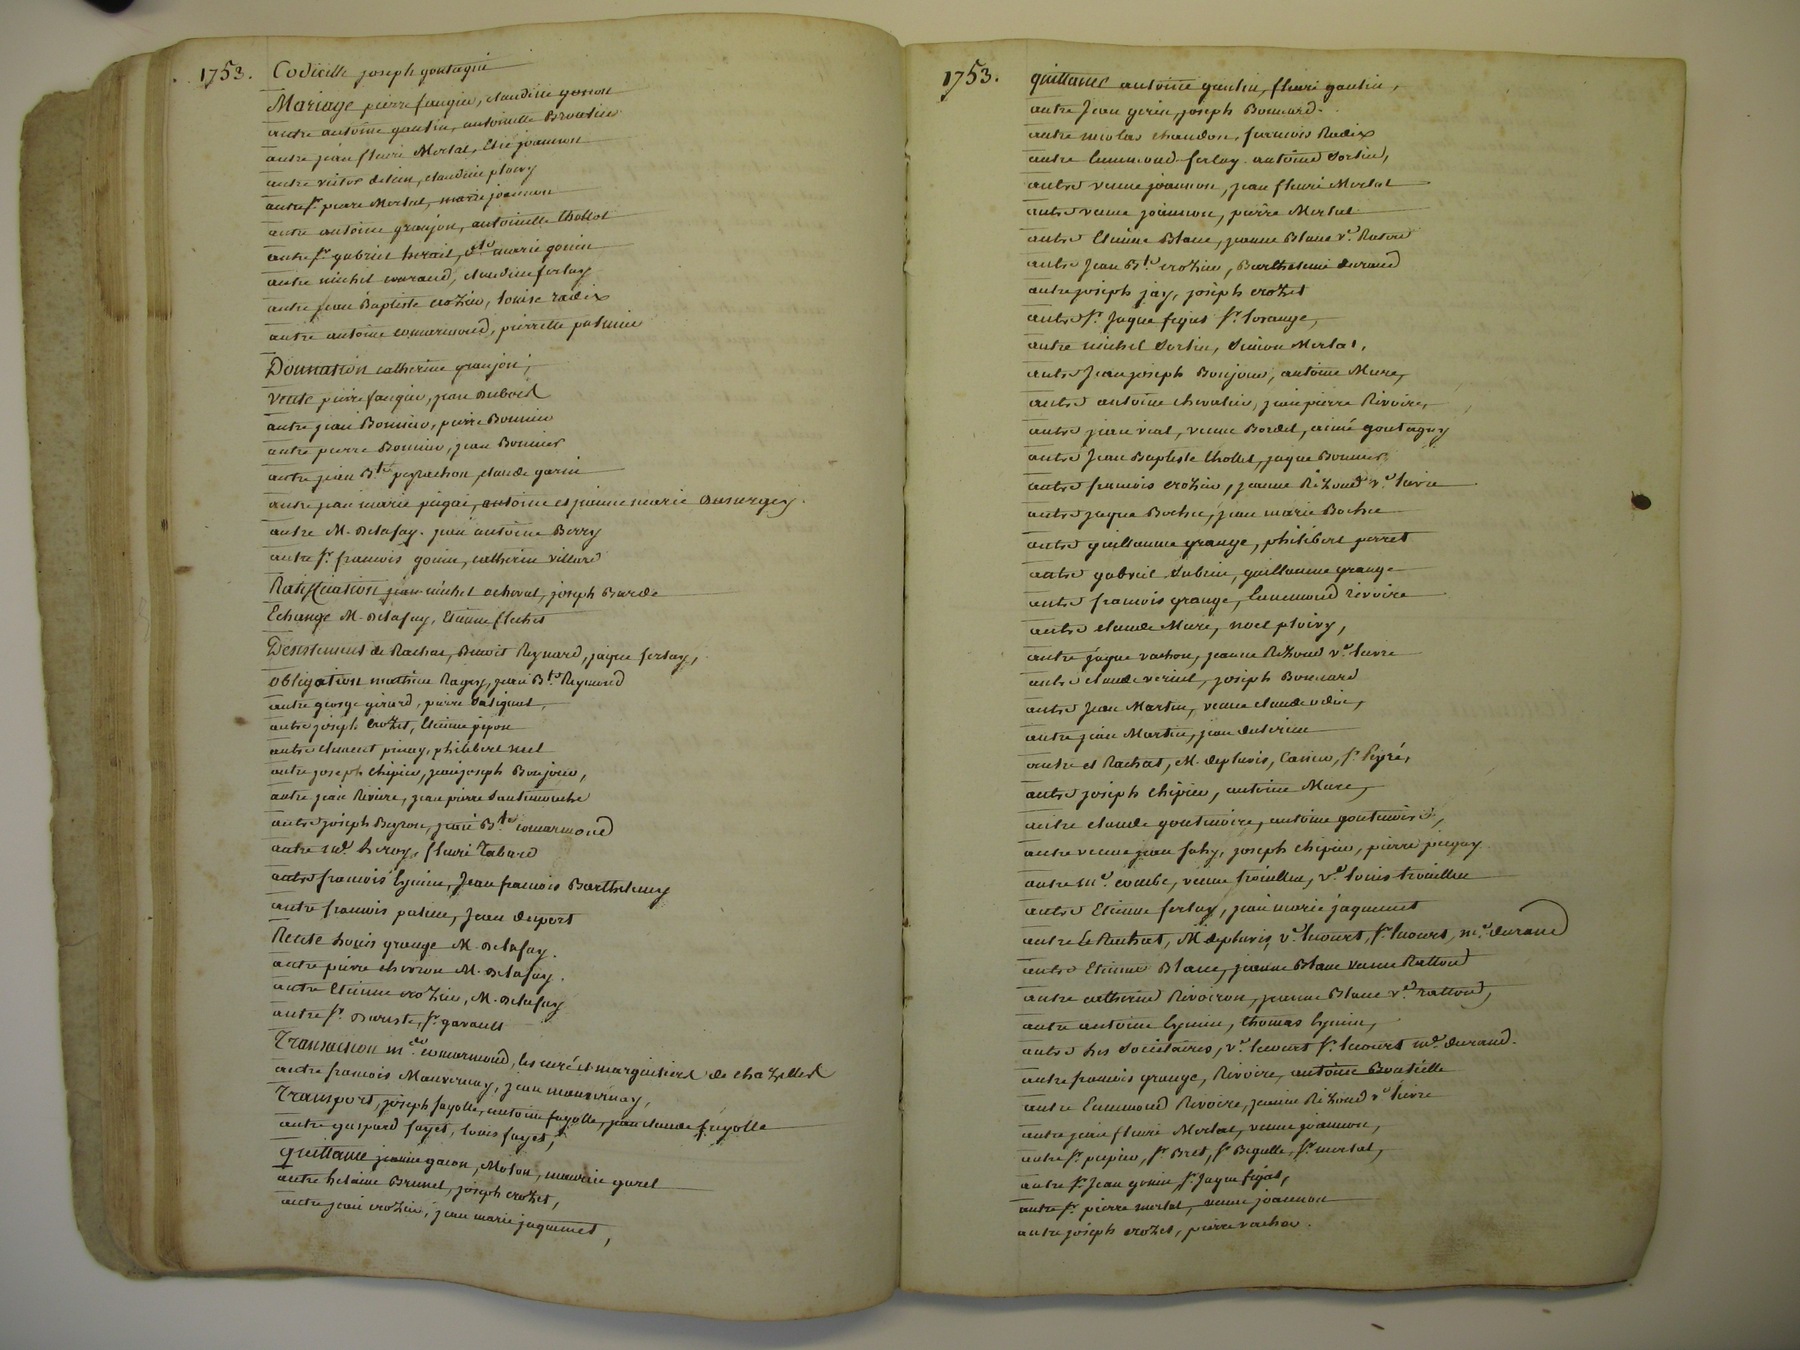 1753. Codicille joseph goutagni
Mariage pierre faugier, claudine gonon
autre antoine gautin, antoinette Brontin
autre jean fleuri Merlat, joannon
autre victor claudine ploivy
autre Sr. pierre Merlat, marie joannon
autre antoine granjon, antoinette thollot
autre Sr. gabriel herail, dlle marie gonin
autre michel couraud, claudine ferlay
autre jean Baptiste crozier, louise radix
autre antoine comarmond, pierrette
Donnation catherine granjon,
Vente pierre faugier, jean Duboid
autre jean Bonnier, pierre Bonnier
autre pierre Bonnier, jean Bonnier
autre jean Bte peyrachon, claude garin
autre jean marie pugai, antoine et jeanne marie
autre M. Delafay. jean antoine Berry
autre Sr. francois gonin, catherine villard
Ratiffication jean michel acheval, joseph Barde
Echange M. Delafay, Etienne flechet
Desistement de Rachat, Benoit Reynard, jaque ferlay,
Obligation mathieu Ragey, jean Bte Reymond
autre george girard, pierre
autre joseph Crozet, Etienne pipon
autre clement pinay, philibert
autre joseph chipier, jean joseph Bonjour,
autre jean Riviere, jean pierre
autre joseph Beyron, jean Bte comarmond
autre md. leroy, fleuri Tabard
autre francois lynier, Jean francois Barthelemy
autre francois Jean deport
Rente Louis grange M. Delafay.
autre pierre chevron M. Delafay.
autre Etienne crozier, M. Delafay
autre Sr. Dareste, Sr. gavault
Transaction comarmond, les curé et marguilliers de chazelles
autre francois Mauvernay, jean mauvernay,
Transport, joseph fayolle, antoine fayolle, jean claude fayolle
autre gaspard fayet, louis fayet,
quittance jeanne gacon, Molon, garel
autre Brunel, joseph crozet,
autre jean crozier, jean marie jaquemet,
1753. quittance antoine gautin, fleuri gautin,
autre Jean gerin, joseph Bonnard.
autre nicolas chaudon, francois Radix
autre Ennemond ferlay. antoine
autre veuve joannon, jean fleuri Merlat
autre veuve joannon, pierre Merlat
autre Etienne Blanc, jeanne Blanc ve.
autre Jean Bte crozier, Barthelemi durand
autre joseph jay, joseph crozet
autre Sr. Jaque Sr. lorange,
autre michel Simon Merlat,
autre Jean joseph Bonjour, antoine Mure,
autre antoine chevalier, jean pierre Rivoire,
autre jean vial, veuve Bordel, aimé goutagny
autre Jean Baptiste thollet, jaque Bonnier
autre francois crozier, jeanne Rizoud ve.
autre jaque Bochu, jean marie Bochu
autre guillaume grange, philibert perret
autre gabriel guillaume grange
autre francois grange, Ennemond rivoire
autre claude Mure, noel ploivy,
autre jaque vachon, jeanne Rizoud ve.
autre claude joseph Bonnard
autre Jean Martin, veuve claude
autre jean Martin, jean
autre et Rachat, M. Carier, Sr.
autre joseph chipier, antoine Mure,
autre claude goutenoire, antoine goutenoire,
autre veuve jean faby, joseph chipier, pierre pugay
autre combe, veuve trouillon, ve. louis trouillon
autre Etienne ferlay, jean marie jaquemet
autre et Rachat, M. ve. lecourt, Sr. lecourt, me. durand
autre Etienne Blanc, jeanne Blanc veuve Ratton
autre catherine Rivoiron, jeanne Blanc ve. ratton,
autre antoine lynier, thomas lynier,
autre les Societaires, ve. lecourt Sr. lecourt me. durand.
autre francois grange, Rivoire, antoine
autre Ennemond Rivoire, jeanne Rizoud ve.
autre jean fleuri Merlat, veuve joannon,
autre Sr. Sr. Bret, Sr. Begulle, Sr. merlat,
autre Sr. Jean gonin, Sr. Jaque
autre Sr. pierre merlat, veuve joannon
autre joseph crozet, pierre vachon.